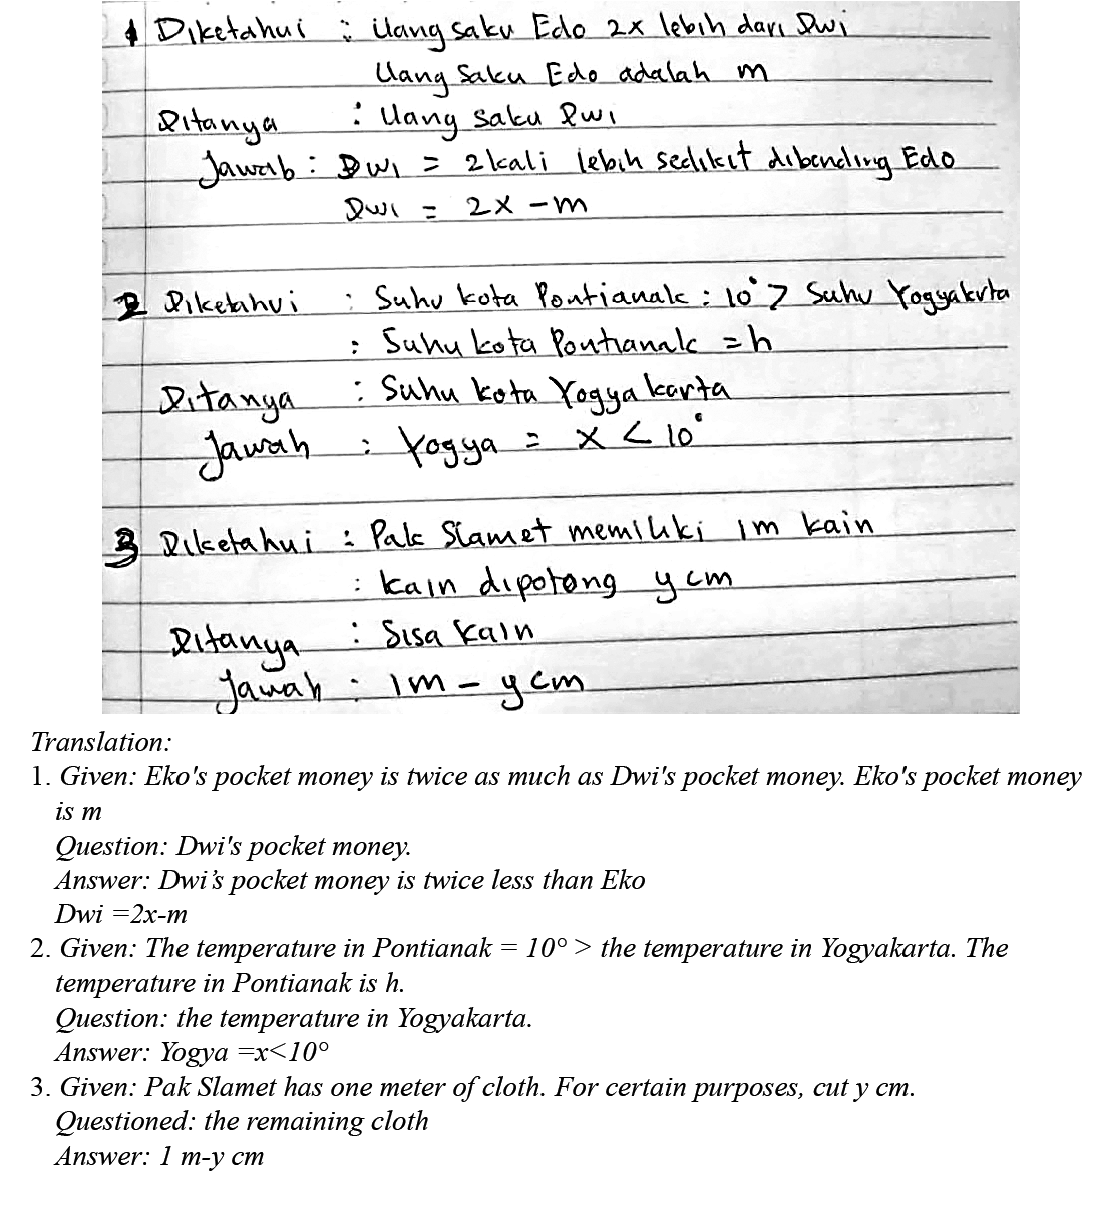 1 Diketahui : Uang saku Edo 2x lebih dari Dwi
Uang Saku Edo adalah m
Ditanya : Uang saku Dwi
Jawab : Dwi = 2 kali lebih sedikit dibending Edo
Dwi = 2x - m
2 Diketahui : Suhu kota Pontianak : 10° > Suhu Yogyakarta
: Suhu kota Pontianak = h
Ditanya : Suhu kota Yogyakarta
Jawab : Yogya = x < 10°
3 Diketahui : Pak Slamet memiliki 1m kain
: kain dipotong y cm
Ditanya : Sisa kain
Jawab : 1m - y cm
Translation:
1. Given: Eko's pocket money is twice as much as Dwi's pocket money. Eko's pocket money
is m
Question: Dwi's pocket money.
Answer: Dwi’s pocket money is twice less than Eko
Dwi =2x-m
2. Given: The temperature in Pontianak = 10° > the temperature in Yogyakarta. The
temperature in Pontianak is h.
Question: the temperature in Yogyakarta.
Answer: Yogya =x<10°
3. Given: Pak Slamet has one meter of cloth. For certain purposes, cut y cm.
Questioned: the remaining cloth
Answer: 1 m-y cm